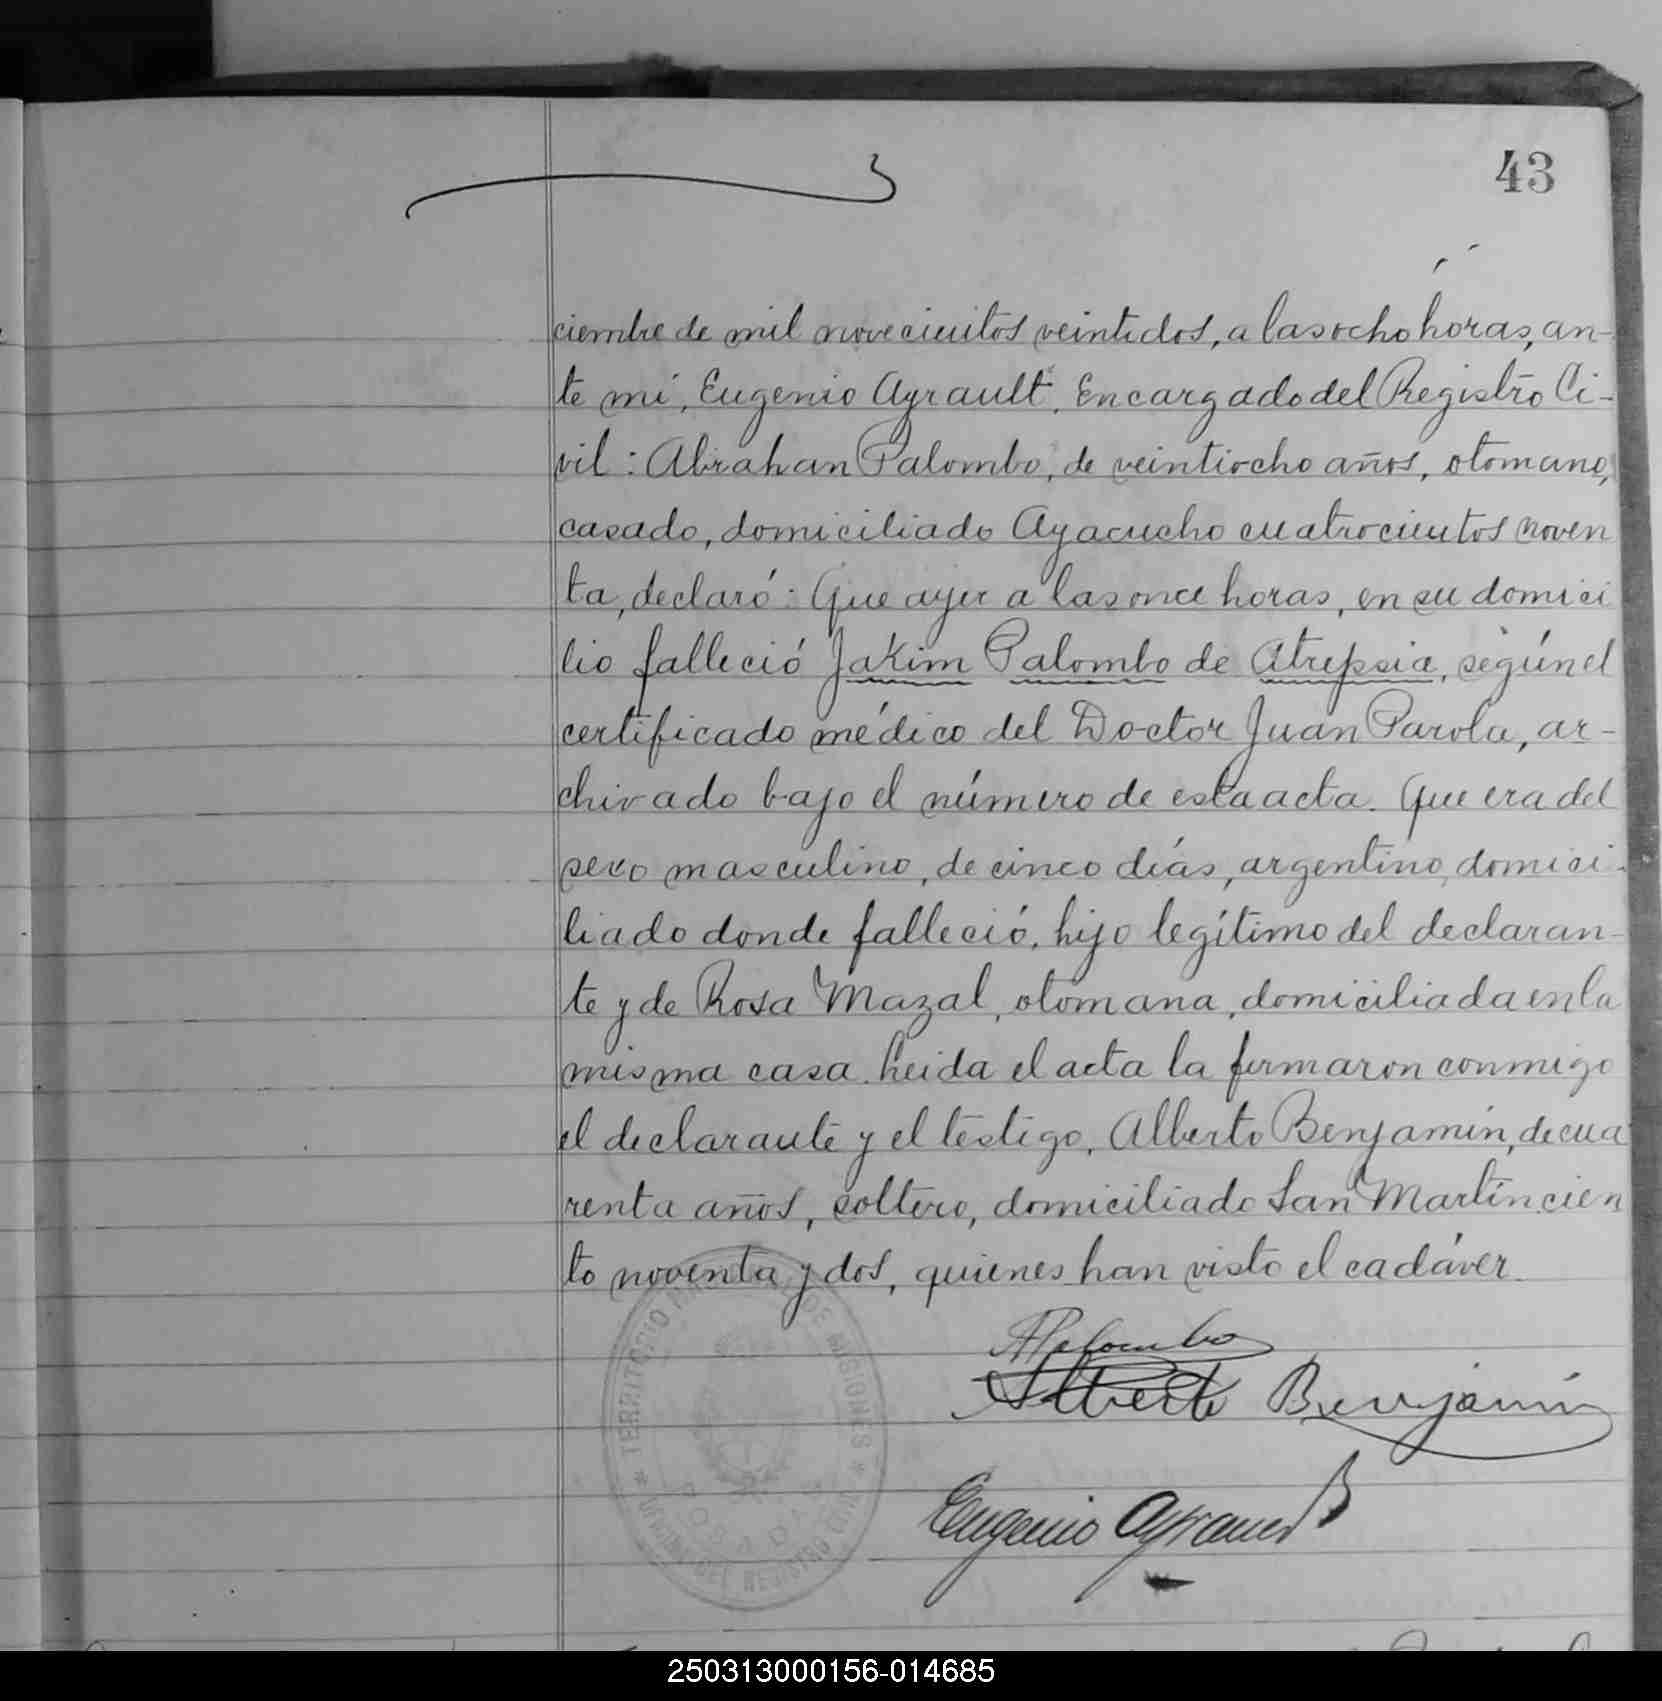 43
ciembre de mil novecientos veintidos, a las ocho horas, an-
te mí, Eugenio Ayrault, Encargado del Registro Ci-
vil: Abrahan Palombo, de veintiocho años, otomano,
casado, domiciliado Ayacucho cuatrocientos noven
ta, declaró: Que ayer a las once horas, en su domici
lio falleció Jakim Palombo de Atrepsia, según el
certificado médico del Doctor Juan Parola, ar-
chivado bajo el número de esta acta. Que era del
sexo masculino, de cinco días, argentino, domici-
liado donde falleció, hijo legítimo del declaran-
te y de Rosa Mazal, otomana, domiciliada en la
misma casa. Leida el acta la firmaron conmigo
el declarante y el testigo, Alberto Benjamín, de cua
renta años, soltero, domiciliado San Martín cien
to noventa y dos, quienes han visto el cadáver.
APalombo
Alberto Benjamín
Eugenio Ayrault
TERRITORIO NACIONAL DE MISIONES
POSADAS
REGISTRO CIVIL
250313000156-014685